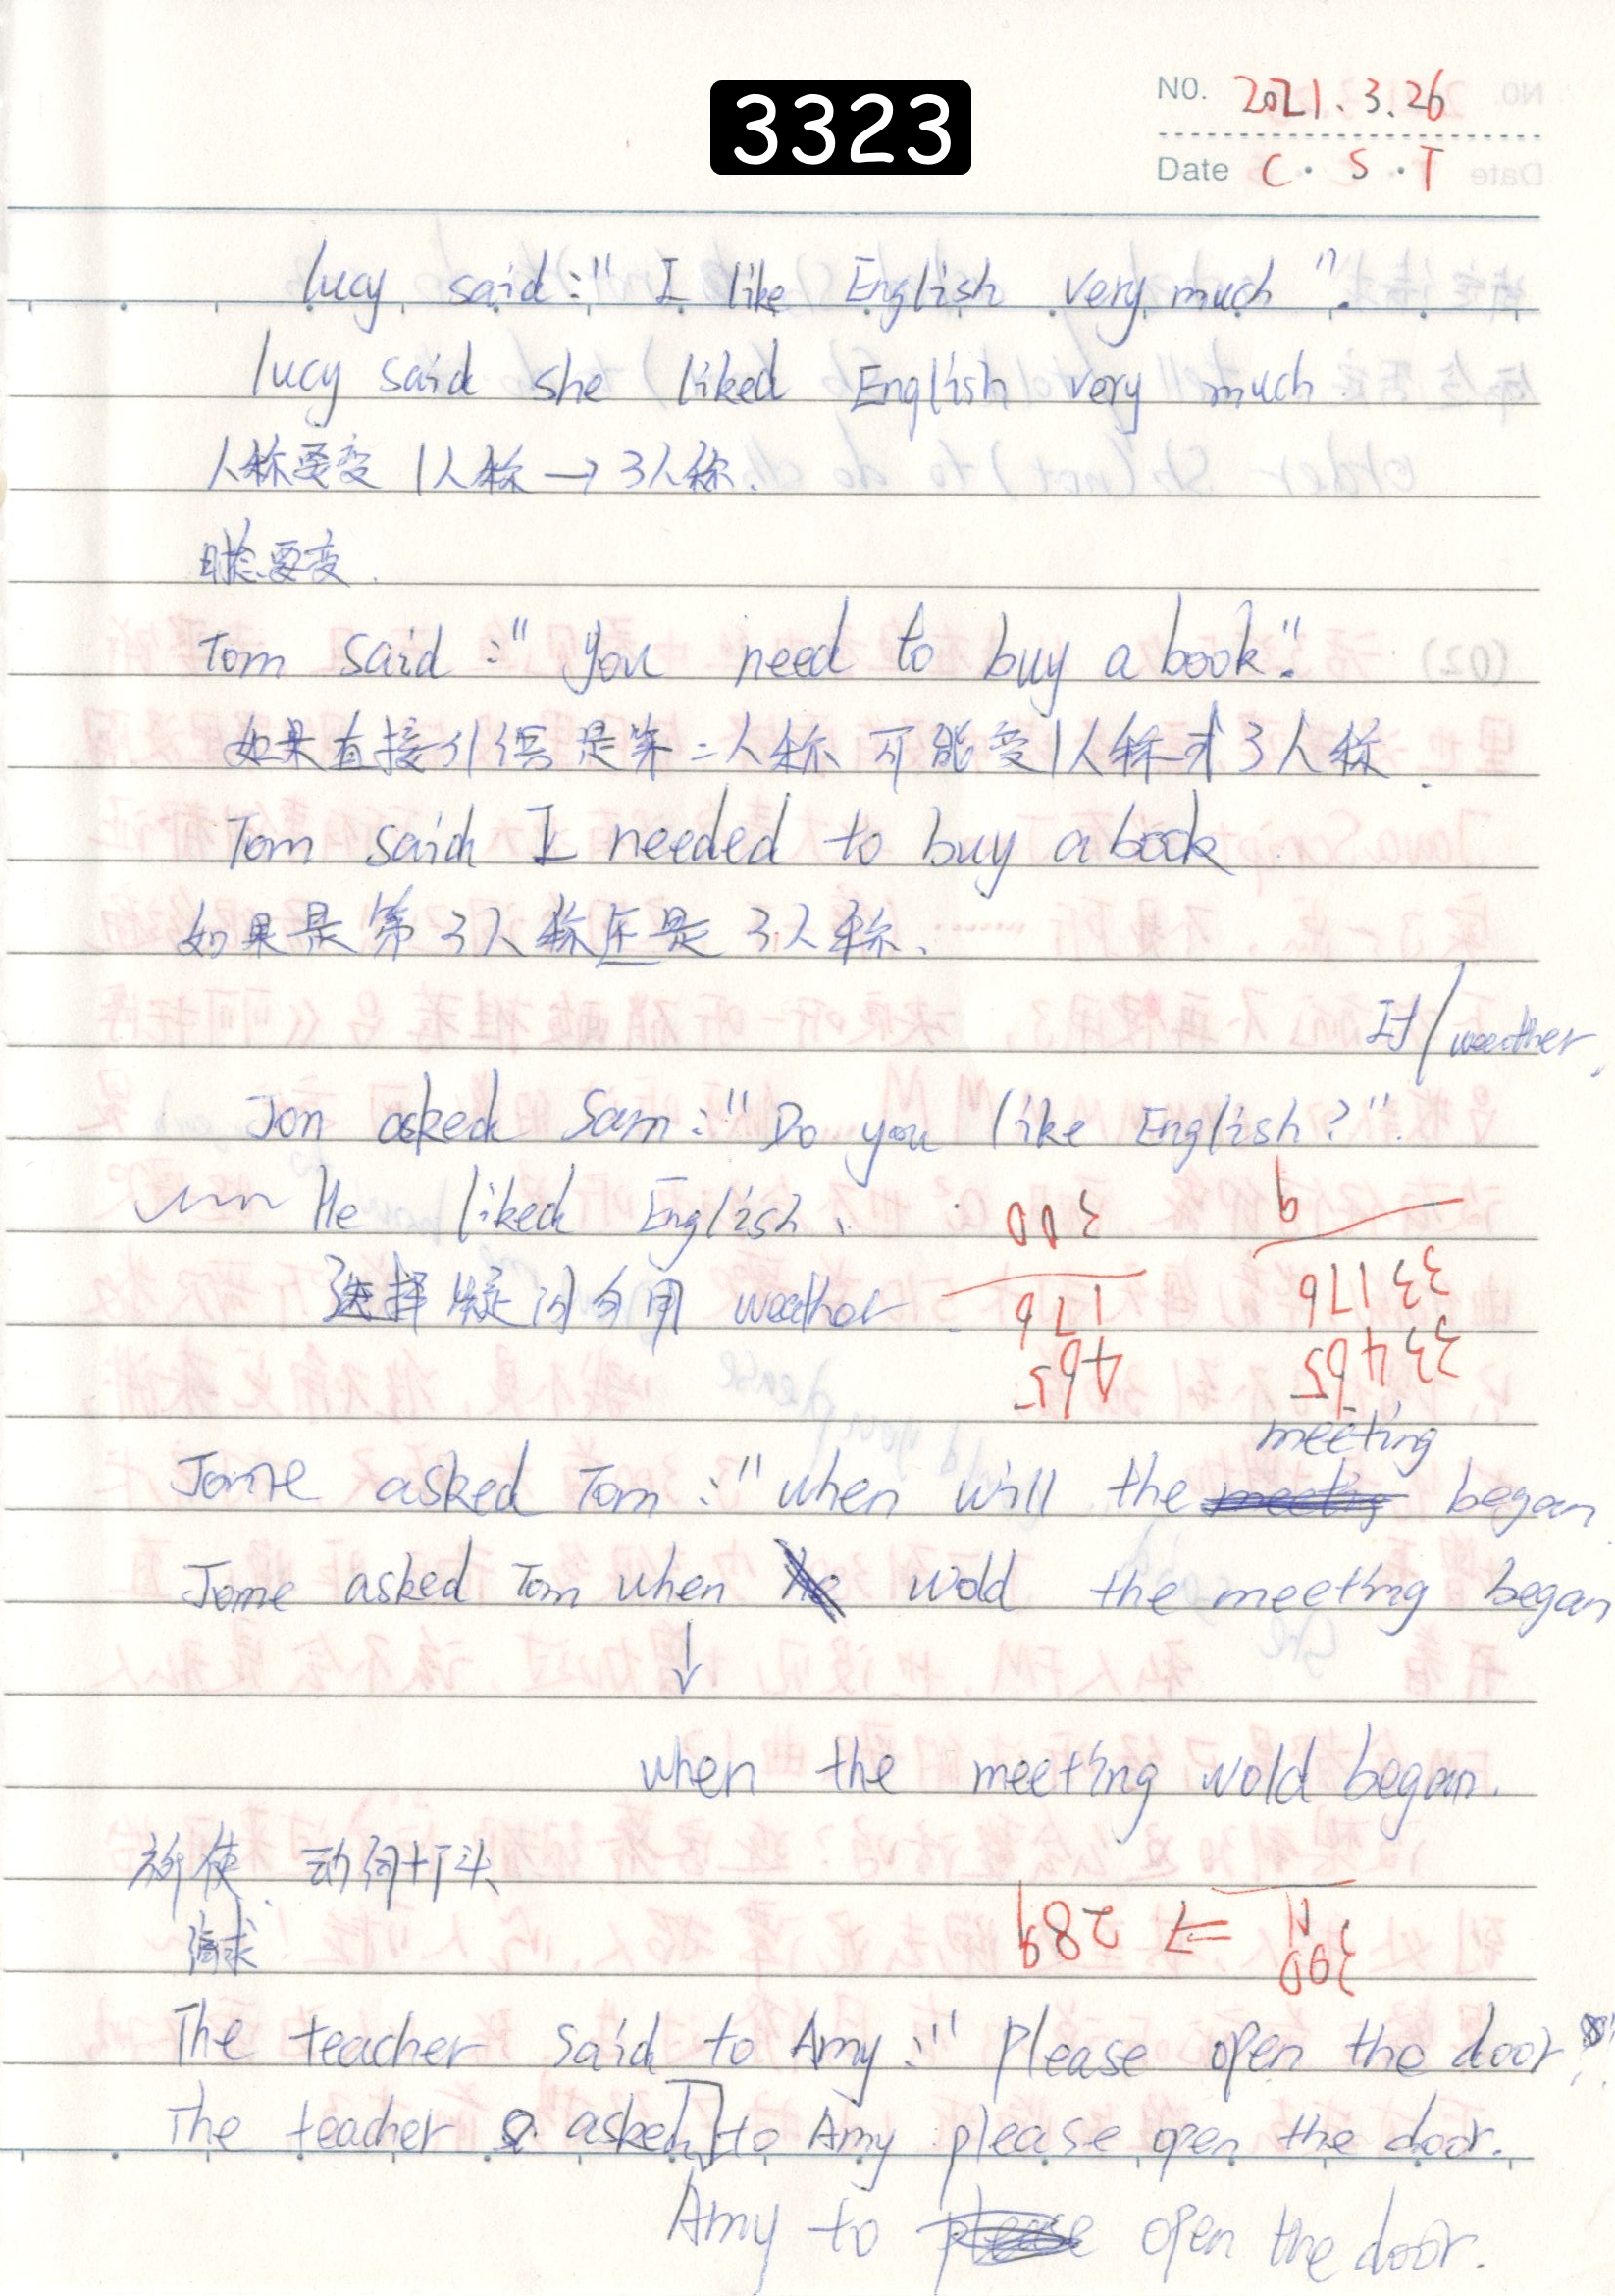 3323
NO. 2021.3.26
Date C·S·T
lucy said:" I like English very much".
lucy said she liked English very much
人称要变 1人称→3人称.
时态要变.
Tom said:" you need to buy a book".
如果直接引 是第二人称 可能变1人称或3人称.
Tom said I needed to buy a book
如果是第3人称还是3人称.
If/weather,
Jon asked Sam:"Do you like English?".
He liked English.
300 9
选择疑问句用 weather
176 33176
465 33465
meeting
asked Tom:"when will the meetig began
Jome asked Tom when he wold the meeting began
↓
when the meeting wold began.
祈使 动词开头
请求
289 ← 11
300
The teacher said to Amy:" please open the door
The teacher asked to Amy please open the door.
Amy to please open the door.